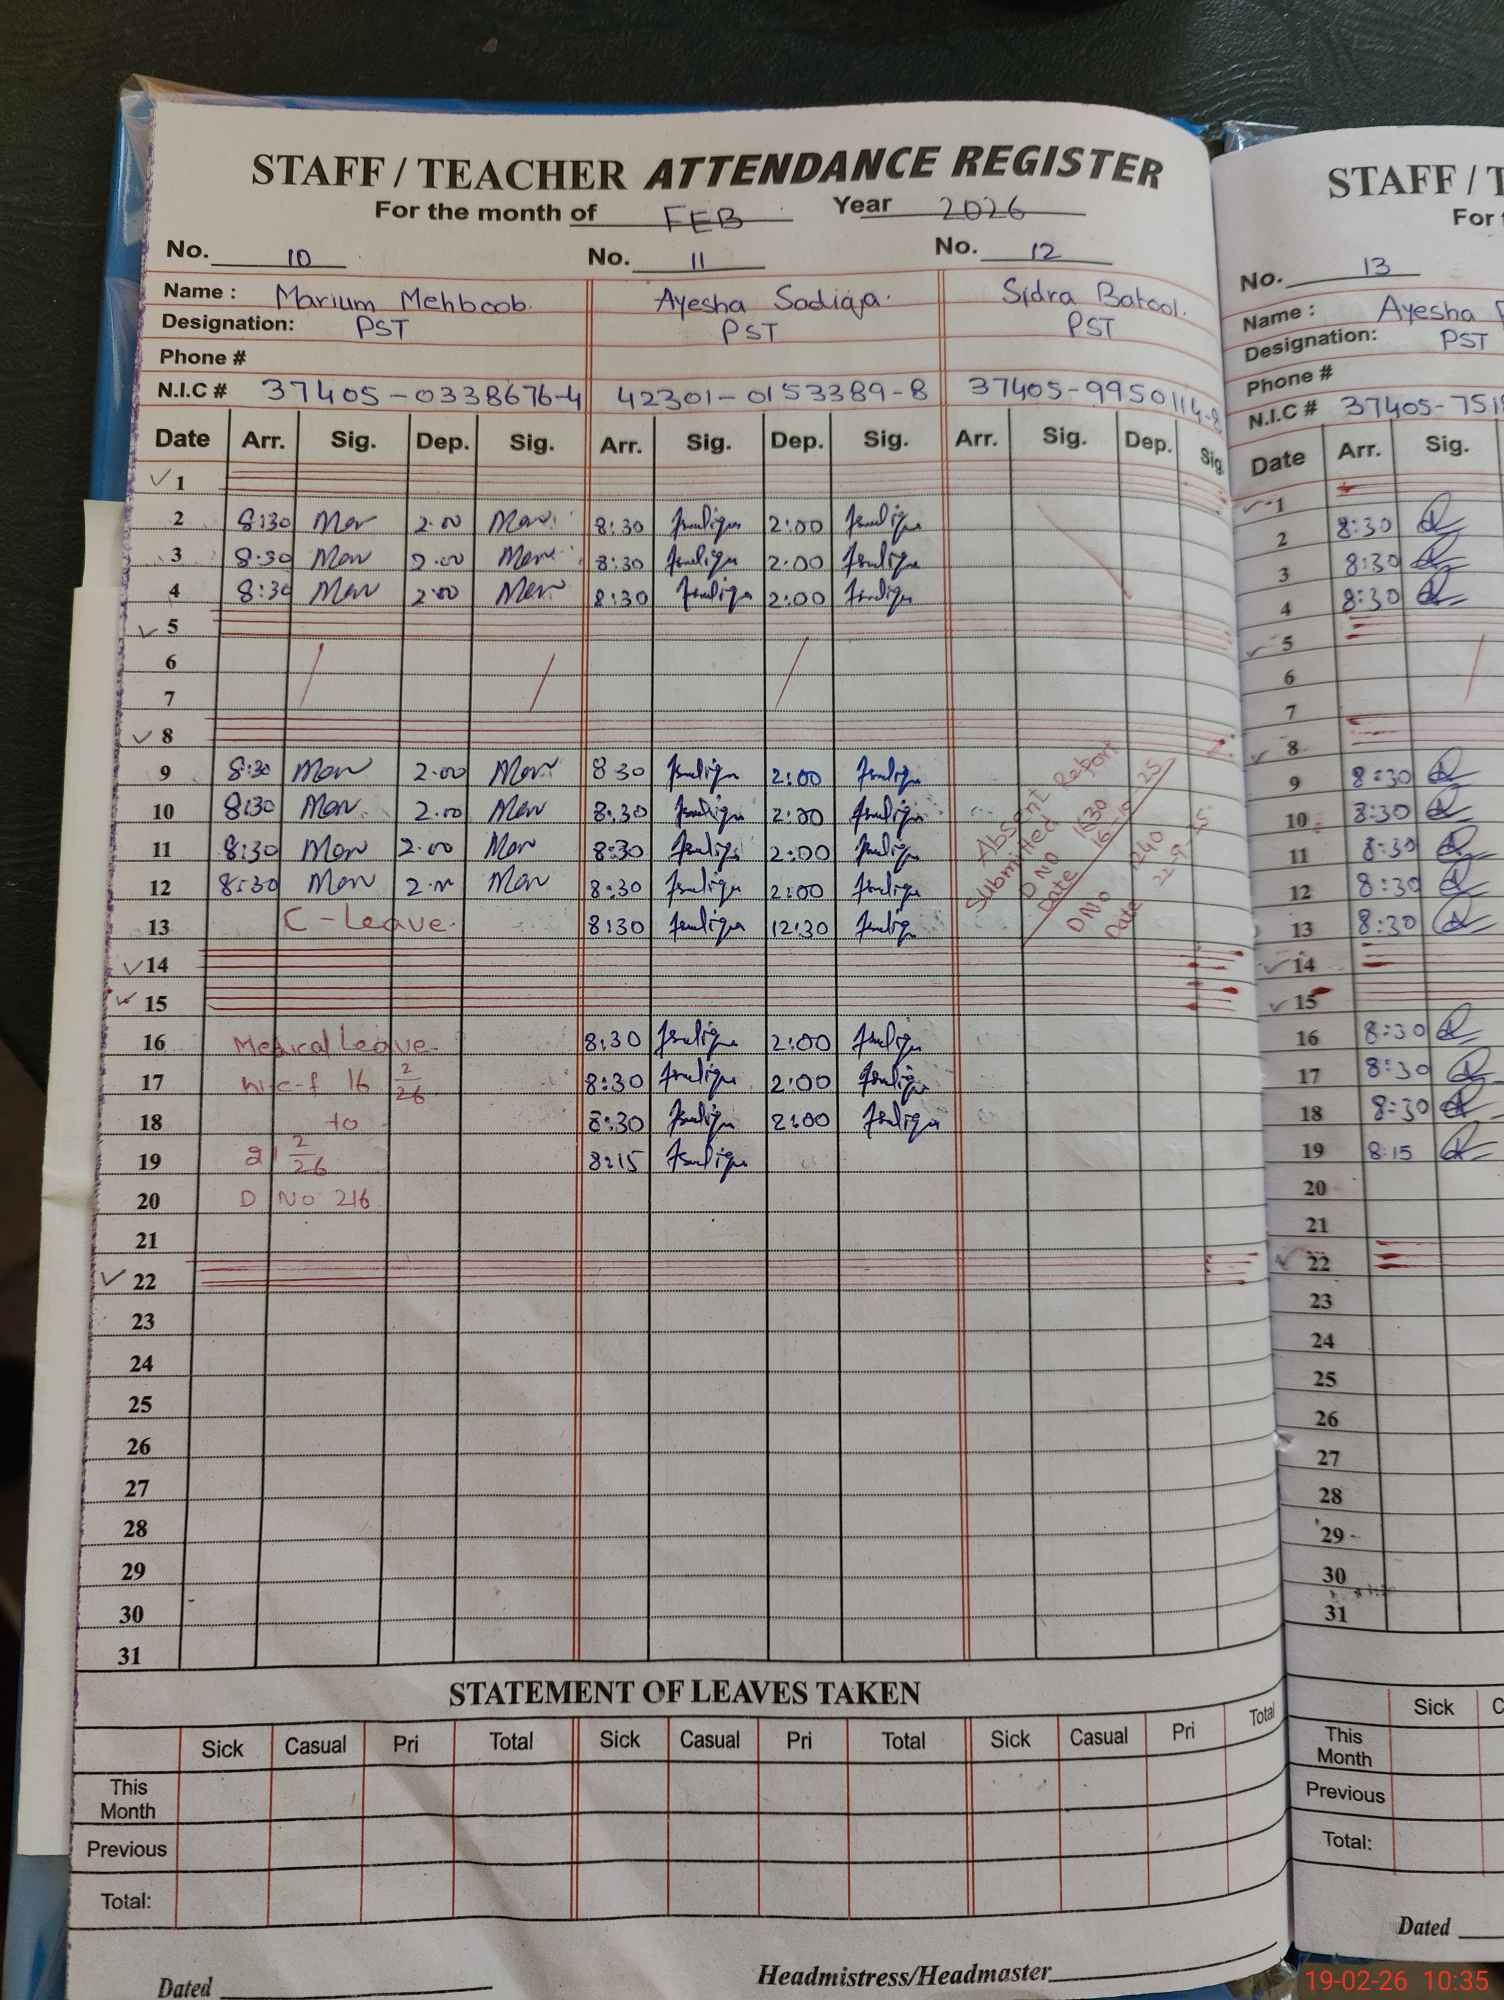 STAFF / TEACHER ATTENDANCE REGISTER
For the month of FEB Year 2026
No. 10 No. 11 No. 12
Name : Marium Mehboob. Ayesha Sadiqa. Sidra Batool.
Designation: PST PST PST
Phone #
N.I.C # 37405-0338676-4 42301-0153389-8 37405-9950114-
Date Arr. Sig. Dep. Sig. Arr. Sig. Dep. Sig. Arr. Sig. Dep. Sig.
1
2 8:30 2.00 8:30 2:00
3 8:30 2.00 8:30 2:00
4 8:30 2.00 8:30 2:00
5
6
7
8
9 8:30 2.00 8 30 2:00
10 8:30 2.00 8:30 2:00
11 8:30 2.00 8:30 2:00
12 8:30 8:30 2:00
13 C-Leave. 8:30 12:30
14
15
16 Medical Leave 8:30 2:00
17 w.e.f 16 2/26 8:30 2:00
18 to 8:30 2:00
19 21 2/26 8:15
20 D No 216
21
22
23
24
25
26
27
28
29
30
31
Absent Report
Submitted
D No 1630
Date
D No 1240
Date
STATEMENT OF LEAVES TAKEN
Sick Casual Pri Total Sick Casual Pri Total Sick Casual Pri Total
This Month
Previous
Total:
Dated
Headmistress/Headmaster
STAFF / T
For
No. 13
Name : Ayesha
Designation: PST
Phone #
N.I.C # 37405-751
Date Arr. Sig.
1
2 8:30
3 8:30
4 8:30
5
6
7
8
9 8:30
10 8:30
11 8:30
12 8:30
13 8:30
14
15
16 8:30
17 8:30
18 8:30
19 8:15
20
21
22
23
24
25
26
27
28
29
30
31
Sick C
This Month
Previous
Total:
Dated
19-02-26 10:35